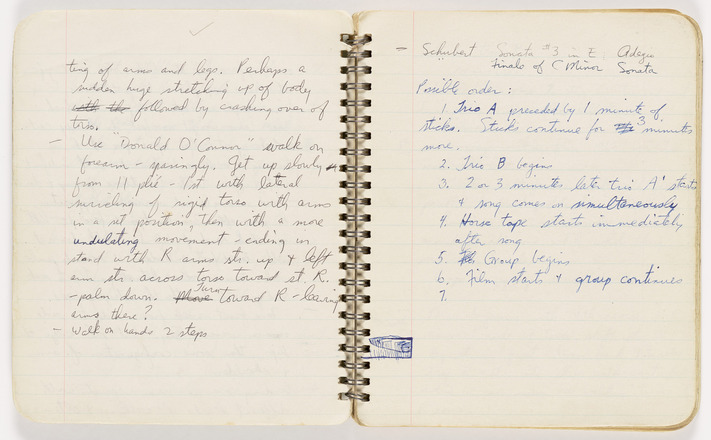 ting of arms and legs. Perhaps a
sudden huge stretching up of body
with the followed by crashing over of
torso.
– Use "Donald O'Connor" walk on
forearm – sparingly. Get up slowly
from 11 plié – 1st with lateral
swiveling of rigid torso with arms
in a set position, then with a more
undulating movement – ending in
stand with R arms str. up & left
arm str. across torso toward st. R.
– palm down. Turn toward R – leaving
arms there?
– Walk on hands 2 steps
– Schubert Sonata #3 in E, Adagio
Finale of C Minor Sonata
Possible order:
1. Trio A preceded by 1 minute of
sticks. Sticks continue for 3 minutes
more.
2. Trio B begins
3. 2 or 3 minutes late trio A' starts
& song comes on simultaneously
4. Horse tape starts immediately
after song
5. Group begins
6. Film starts & group continues
7.